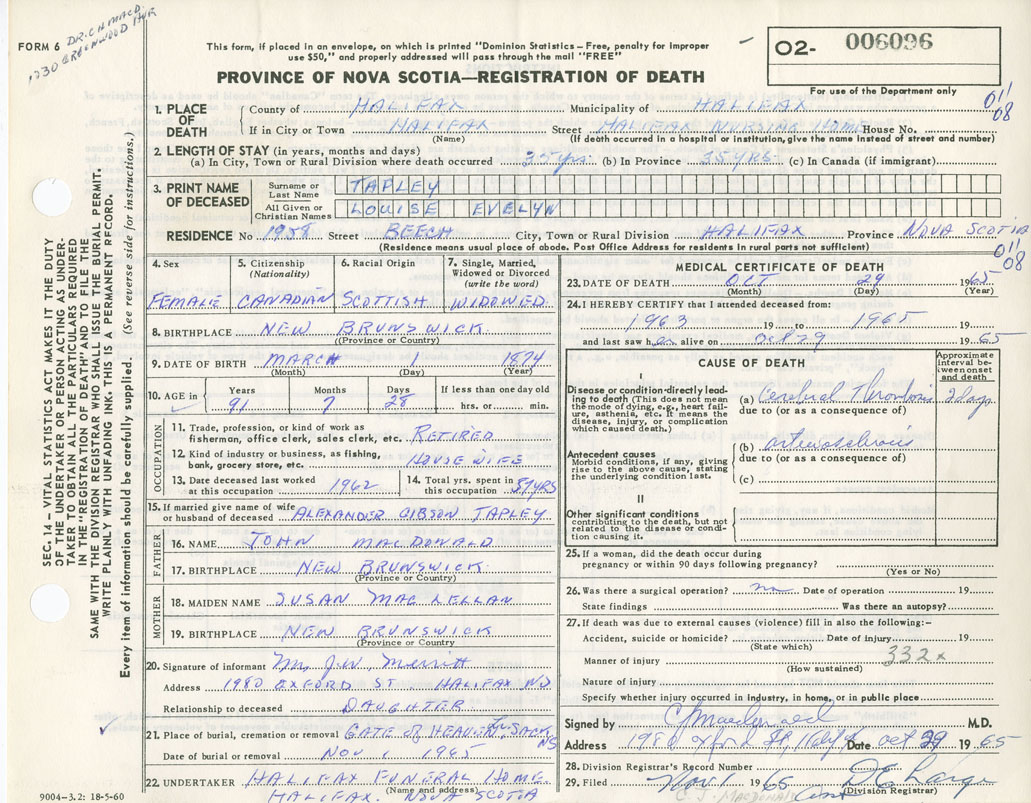 DR. C H MACD
1730 GREENWOOD AVR
FORM 6
This form, if placed in an envelope, on which is printed "Dominion Statistics – Free, penalty for improper
use $50," and properly addressed will pass through the mail "FREE"
PROVINCE OF NOVA SCOTIA—REGISTRATION OF DEATH
O2- 006096
For use of the Department only
011
08
1. PLACE OF DEATH
County of HALIFAX Municipality of HALIFAX
If in City or Town HALIFAX Street HALIFAX NURSING HOME House No.
(Name) (If death occurred in a hospital or institution, give the name instead of street and number)
2. LENGTH OF STAY (in years, months and days)
(a) In City, Town or Rural Division where death occurred 35 yrs. (b) In Province 35 YRS. (c) In Canada (if immigrant)
3. PRINT NAME OF DECEASED
Surname or Last Name TAPLEY
All Given or Christian Names LOUISE EVELYN
RESIDENCE No 1958 Street BEECH City, Town or Rural Division HALIFAX Province NOVA SCOTIA
(Residence means usual place of abode. Post Office Address for residents in rural parts not sufficient)
011
08
4. Sex FEMALE
5. Citizenship (Nationality) CANADIAN
6. Racial Origin SCOTTISH
7. Single, Married, Widowed or Divorced (write the word) WIDOWED
8. BIRTHPLACE NEW BRUNSWICK
(Province or Country)
9. DATE OF BIRTH MARCH 1 1874
(Month) (Day) (Year)
10. AGE in Years 91 Months 7 Days 28 If less than one day old hrs. or min.
OCCUPATION
11. Trade, profession, or kind of work as fisherman, office clerk, sales clerk, etc. RETIRED
12. Kind of industry or business, as fishing, bank, grocery store, etc. HOUSEWIFE
13. Date deceased last worked at this occupation 1962
14. Total yrs. spent in this occupation 59 YRS
15. If married give name of wife or husband of deceased ALEXANDER GIBSON TAPLEY
FATHER
16. NAME JOHN MACDONALD
17. BIRTHPLACE NEW BRUNSWICK
(Province or Country)
MOTHER
18. MAIDEN NAME SUSAN MACLELLAN
19. BIRTHPLACE NEW BRUNSWICK
(Province or Country)
20. Signature of informant Mrs J.W. Merritt
Address 1980 OXFORD ST. HALIFAX NS
Relationship to deceased DAUGHTER
21. Place of burial, cremation or removal GATE OF HEAVEN SACK NS
Date of burial or removal NOV 1 1965
22. UNDERTAKER HALIFAX FUNERAL HOME
(Name and address)
HALIFAX. NOVA SCOTIA
MEDICAL CERTIFICATE OF DEATH
23. DATE OF DEATH OCT 29 1965
(Month) (Day) (Year)
24. I HEREBY CERTIFY that I attended deceased from:
1963 19 to 1965 19
and last saw her alive on Oct 29 1965
CAUSE OF DEATH
Approximate interval between onset and death
I
Disease or condition directly leading to death (This does not mean the mode of dying, e.g., heart failure, asthenia, etc. It means the disease, injury, or complication which caused death.)
(a) Cerebral Thrombosis 3 days
due to (or as a consequence of)
Antecedent causes
Morbid conditions, if any, giving rise to the above cause, stating the underlying condition last.
(b) arteriosclerosis
due to (or as a consequence of)
(c)
II
Other significant conditions
contributing to the death, but not related to the disease or condition causing it.
25. If a woman, did the death occur during pregnancy or within 90 days following pregnancy?
(Yes or No)
26. Was there a surgical operation? no Date of operation 19
State findings Was there an autopsy?
27. If death was due to external causes (violence) fill in also the following:–
Accident, suicide or homicide? Date of injury 19
(State which)
Manner of injury 332x
(How sustained)
Nature of injury
Specify whether injury occurred in industry, in home, or in public place
Signed by C Macdonald M.D.
Address 198 Oxford St, Halifax Date Oct 29 1965
28. Division Registrar's Record Number
29. Filed Nov 1 1965
(Division Registrar)
C. J. MACDONALD
SEC. 14 – VITAL STATISTICS ACT MAKES IT THE DUTY
OF THE UNDERTAKER OR PERSON ACTING AS UNDER-
TAKER TO OBTAIN ALL THE PARTICULARS REQUIRED
IN THE "REGISTRATION OF DEATH" AND TO FILE THE
SAME WITH THE DIVISION REGISTRAR WHO SHALL ISSUE THE BURIAL PERMIT.
WRITE PLAINLY WITH UNFADING INK. THIS IS A PERMANENT RECORD.
Every item of information should be carefully supplied. (See reverse side for instructions.)
9004-3.2: 18-5-60